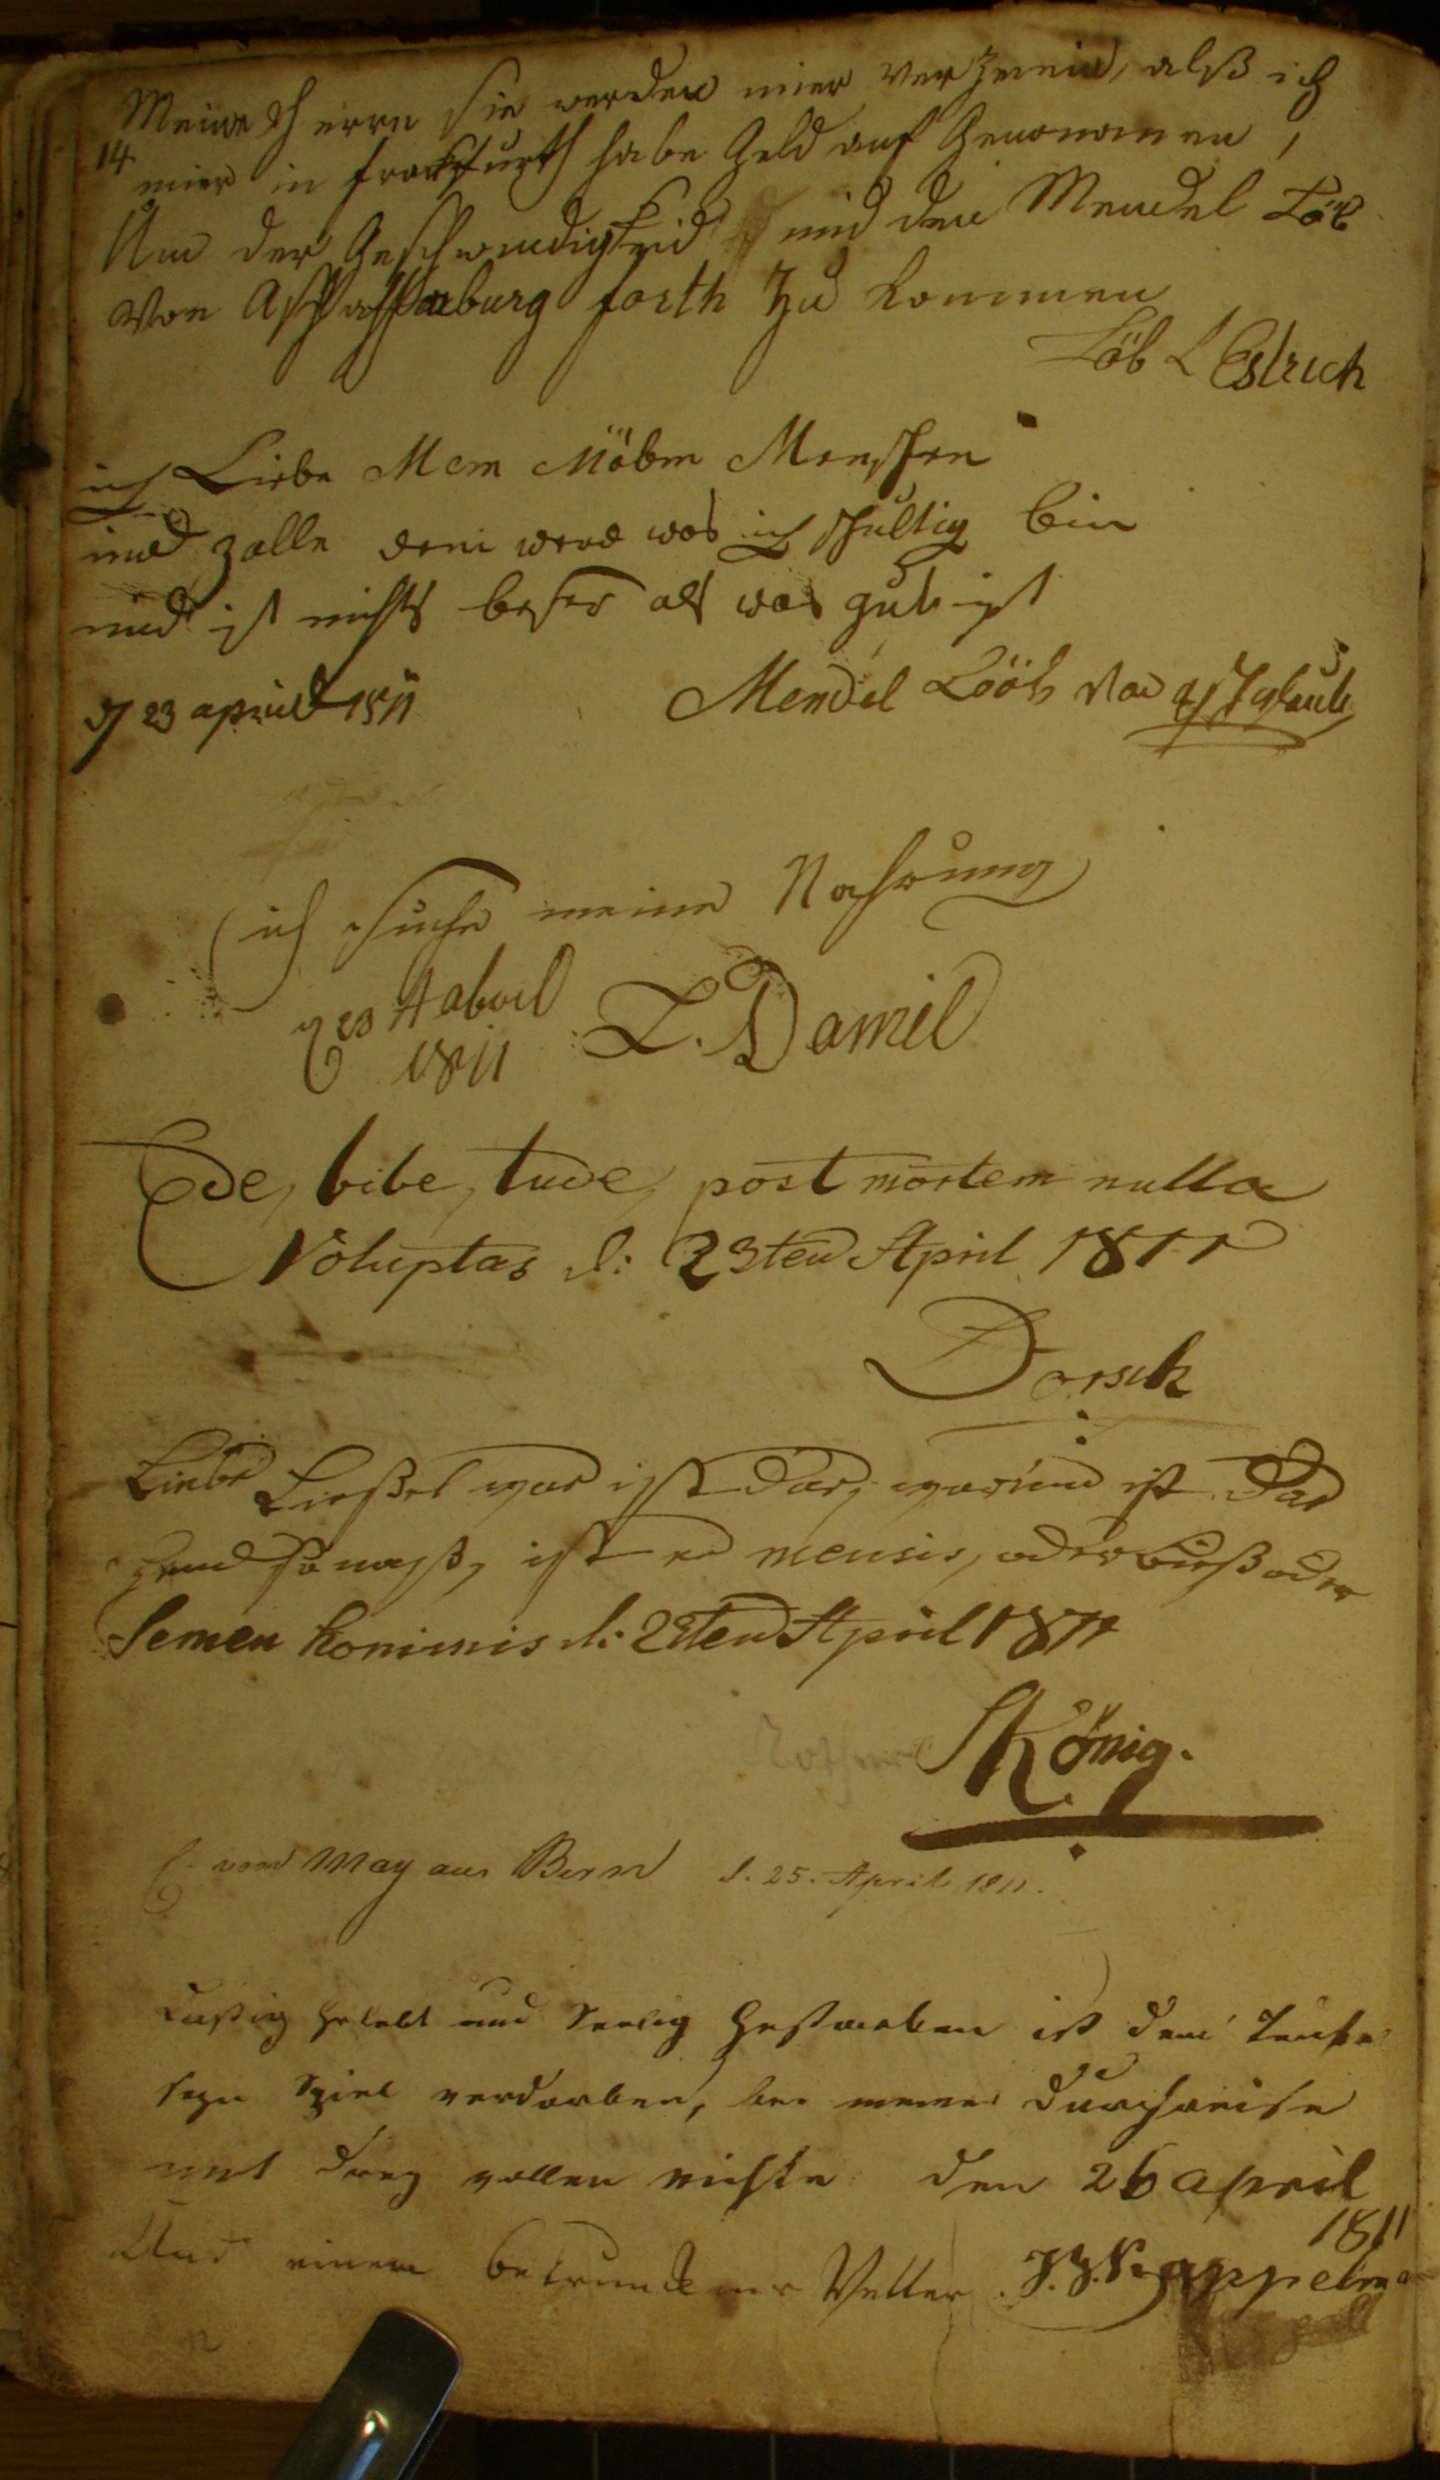 Meine Herrn Sie werden mier verzeien, alß ich
14
mier in frankfurth habe Geld auf Genomen,
Um der Geschwindigkeid mid den Mendel Löb
von Aschaffenburg forth zu kommen
Löb L Estrich
ich Liebe Mem Nöbm Menschen
und zalle dem werd was ich schultig bin
und ist nichts besser als was gut ist
d 23 april 1811
Mendel Lööb von
ich suche meine Nahrung
d 23 Abril
1811
L. Daniel
Ede, bibe, lude, post mortem nulla
Voluptas d: 23ten April 1811
Dorsch
Liebe Ließel was ist das, warum ist das
Hemd so naß, ist es mensis, oder oder
Semen hominis d: 23ten April 1811
König.
C. von May aus Bern d. 25. April 1811.
Lustig gelebt und Seelig gestorben ist dem Teufel
sein Spiel verdorben, bei meiner Durchreise
mit drey vollen den 26 april
1811
Und einem betrunkener Vetter. J. J.